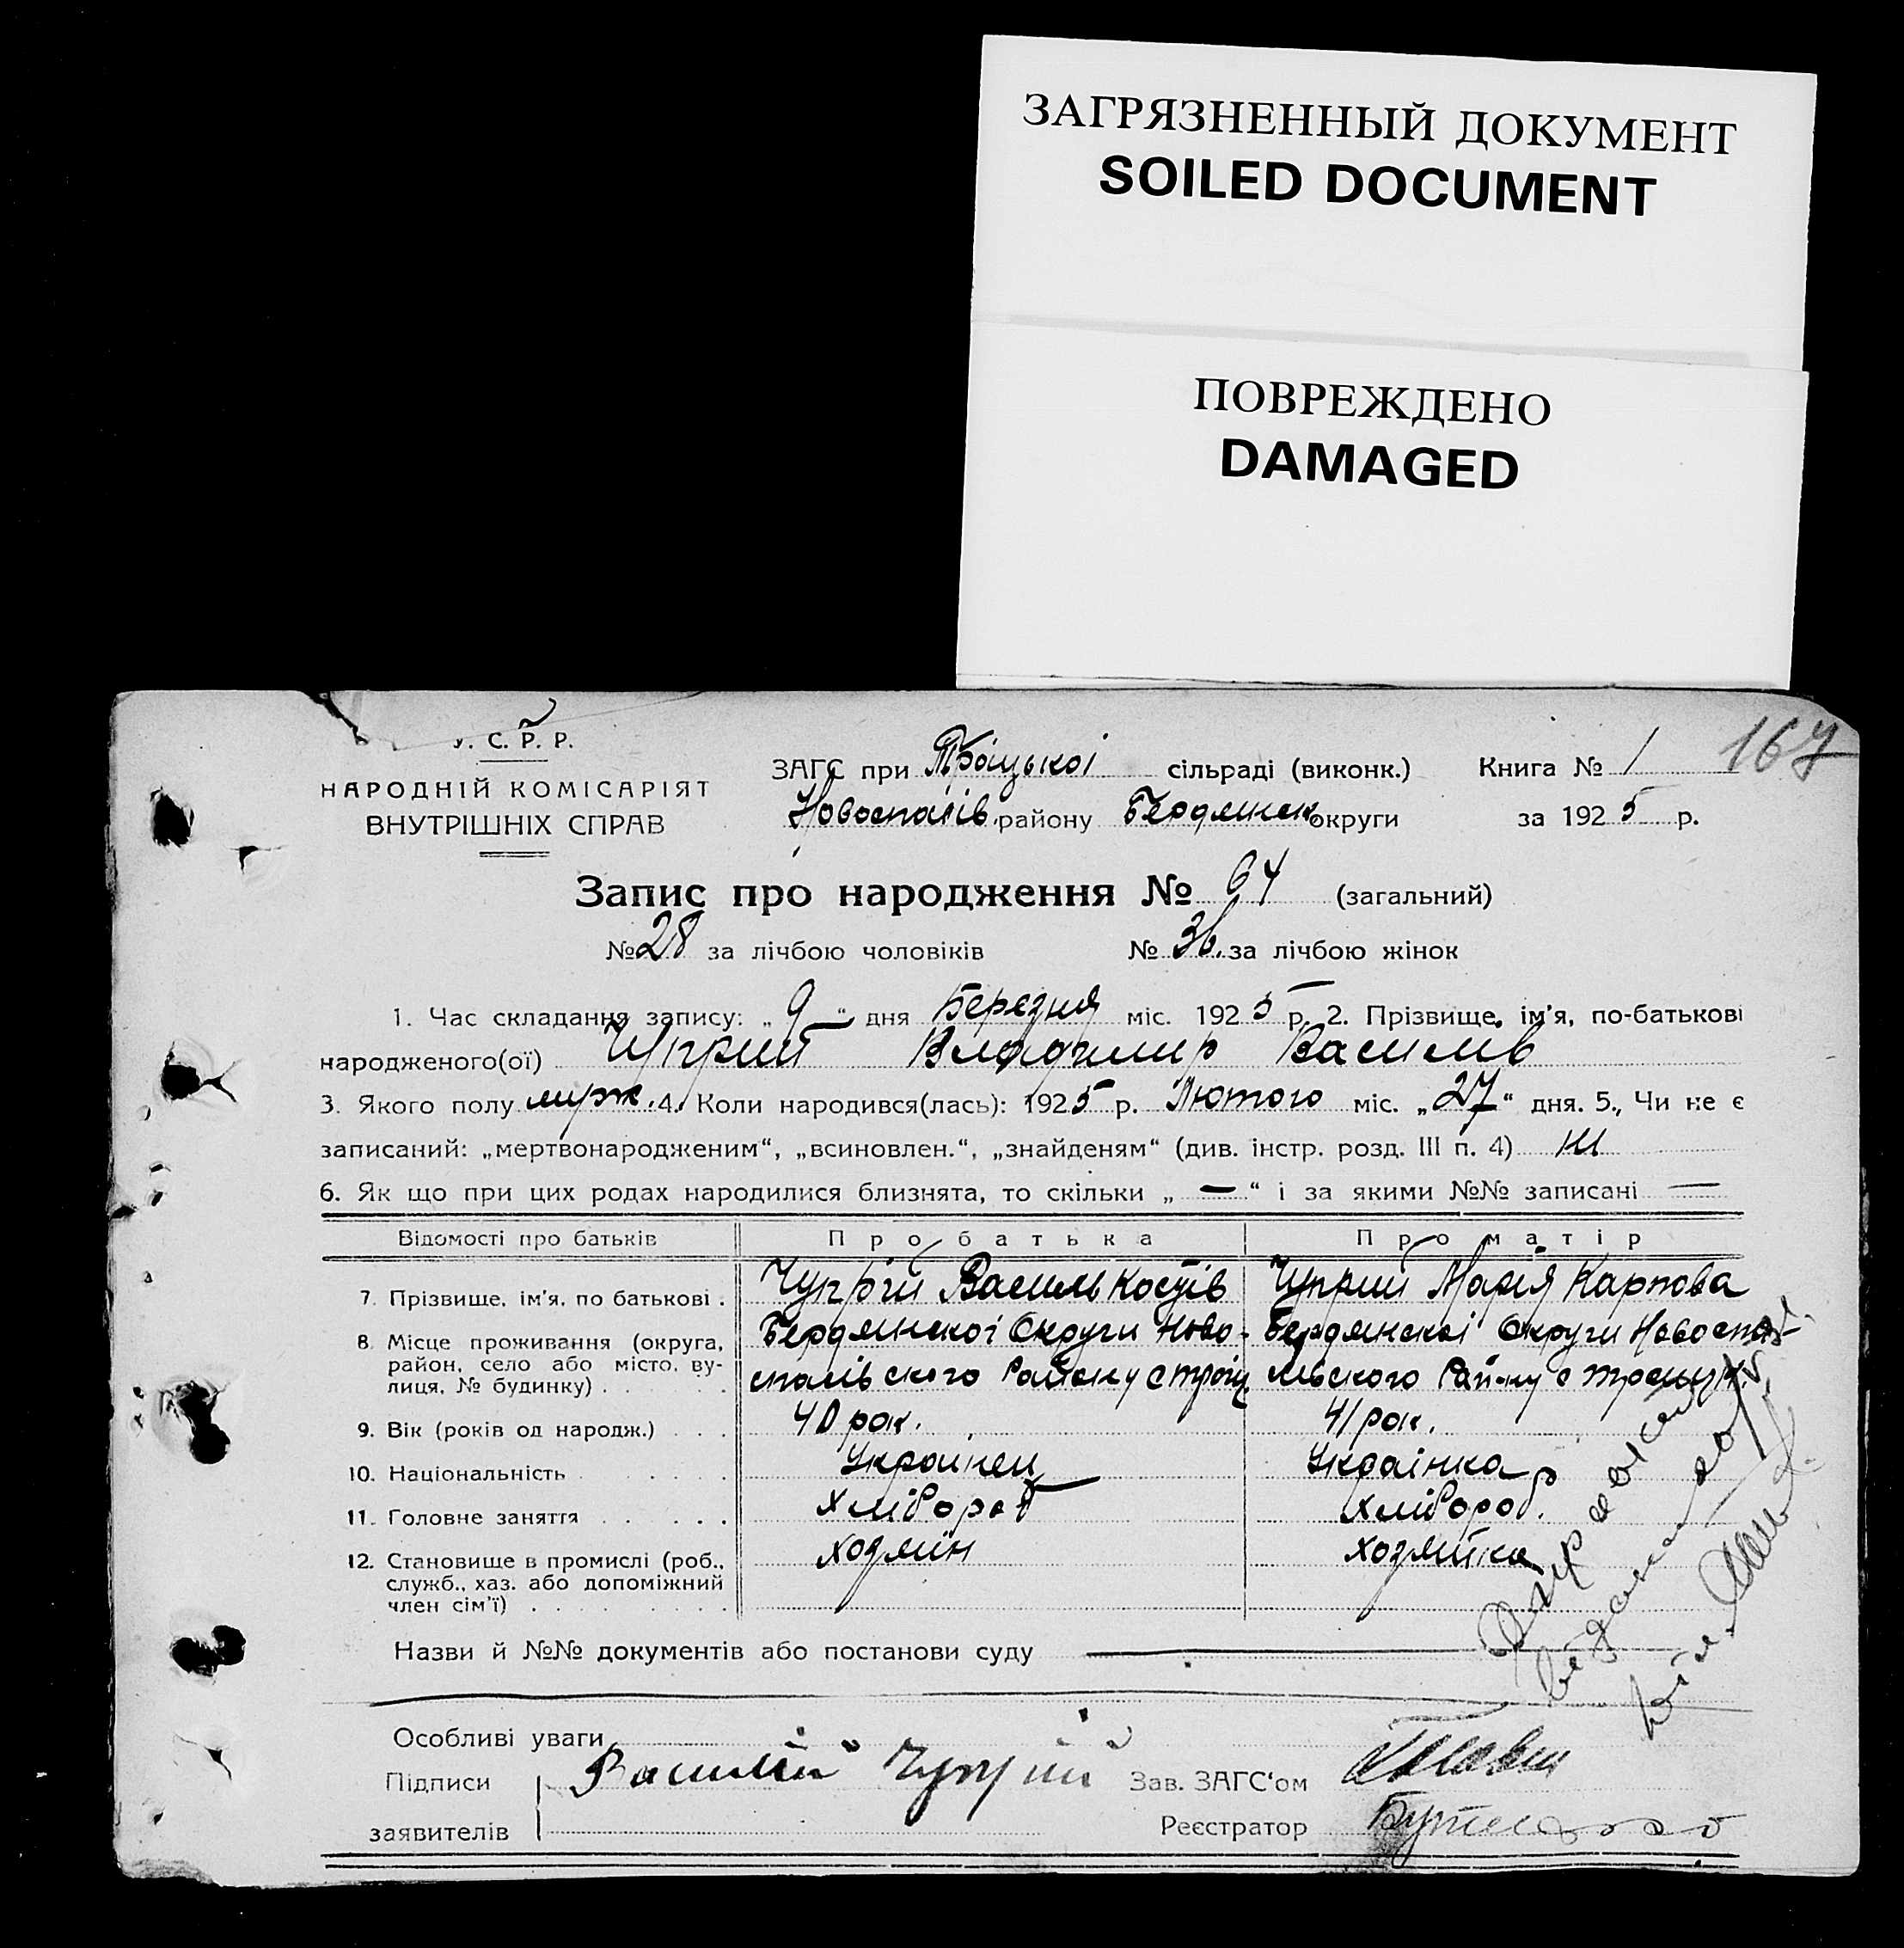 ЗАГРЯЗНЕННЫЙ ДОКУМЕНТ
SOILED DOCUMENT
ПОВРЕЖДЕНО
DAMAGED
167
У. С. Р. Р.
НАРОДНІЙ КОМІСАРІЯТ
ВНУТРІШНІХ СПРАВ
ЗАГС при Троіцькоі сільраді (виконк.) Книга № 1
Новоспасів. району Бердянськ округи за 1925 р.
Запис про народження № 64 (загальний)
№ 28 за лічбою чоловіків № 36. за лічбою жінок
1. Час складання запису: „9“ дня Березня міс. 1925 р. 2. Прізвище, ім’я, по-батькові
народженого(ої) Чуприй Владимир Василів
3. Якого полу муж. 4. Коли народився(лась): 1925 р. Лютого міс. „27“ дня. 5., Чи не є
записаний: „мертвонародженим“, „всиновлен.“, „знайденям“ (див. інстр. розд. III п. 4) ні
6. Як що при цих родах народилися близнята, то скільки „ — “ і за якими №№ записані —
Відомості про батьків Про батька Про матір
7. Прізвище, ім’я, по батькові . Чупрій Василь Костів Чуприй Марія Карпова
8. Місце проживання (округа, район, село або місто, вулиця, № будинку) . . Бердянськоі Округи Ново-спасівського Району с Троіц. Бердянськоі Округи Новоспасівського Району с
9. Вік (років од народж.) . . . 40 рок. 41 рок.
10. Національність . . . . Украинец Украінка
11. Головне заняття . . . . . Хлібороб Хлібороб.
12. Становище в промислі (роб., служб., хаз. або допоміжний член сім’ї) . . . . . . . Хозяін Хозяйка
Назви й №№ документів або постанови суду
Особливі уваги
Підписи Василій Чуприй Зав. ЗАГС‘ом
заявителів Реєстратор